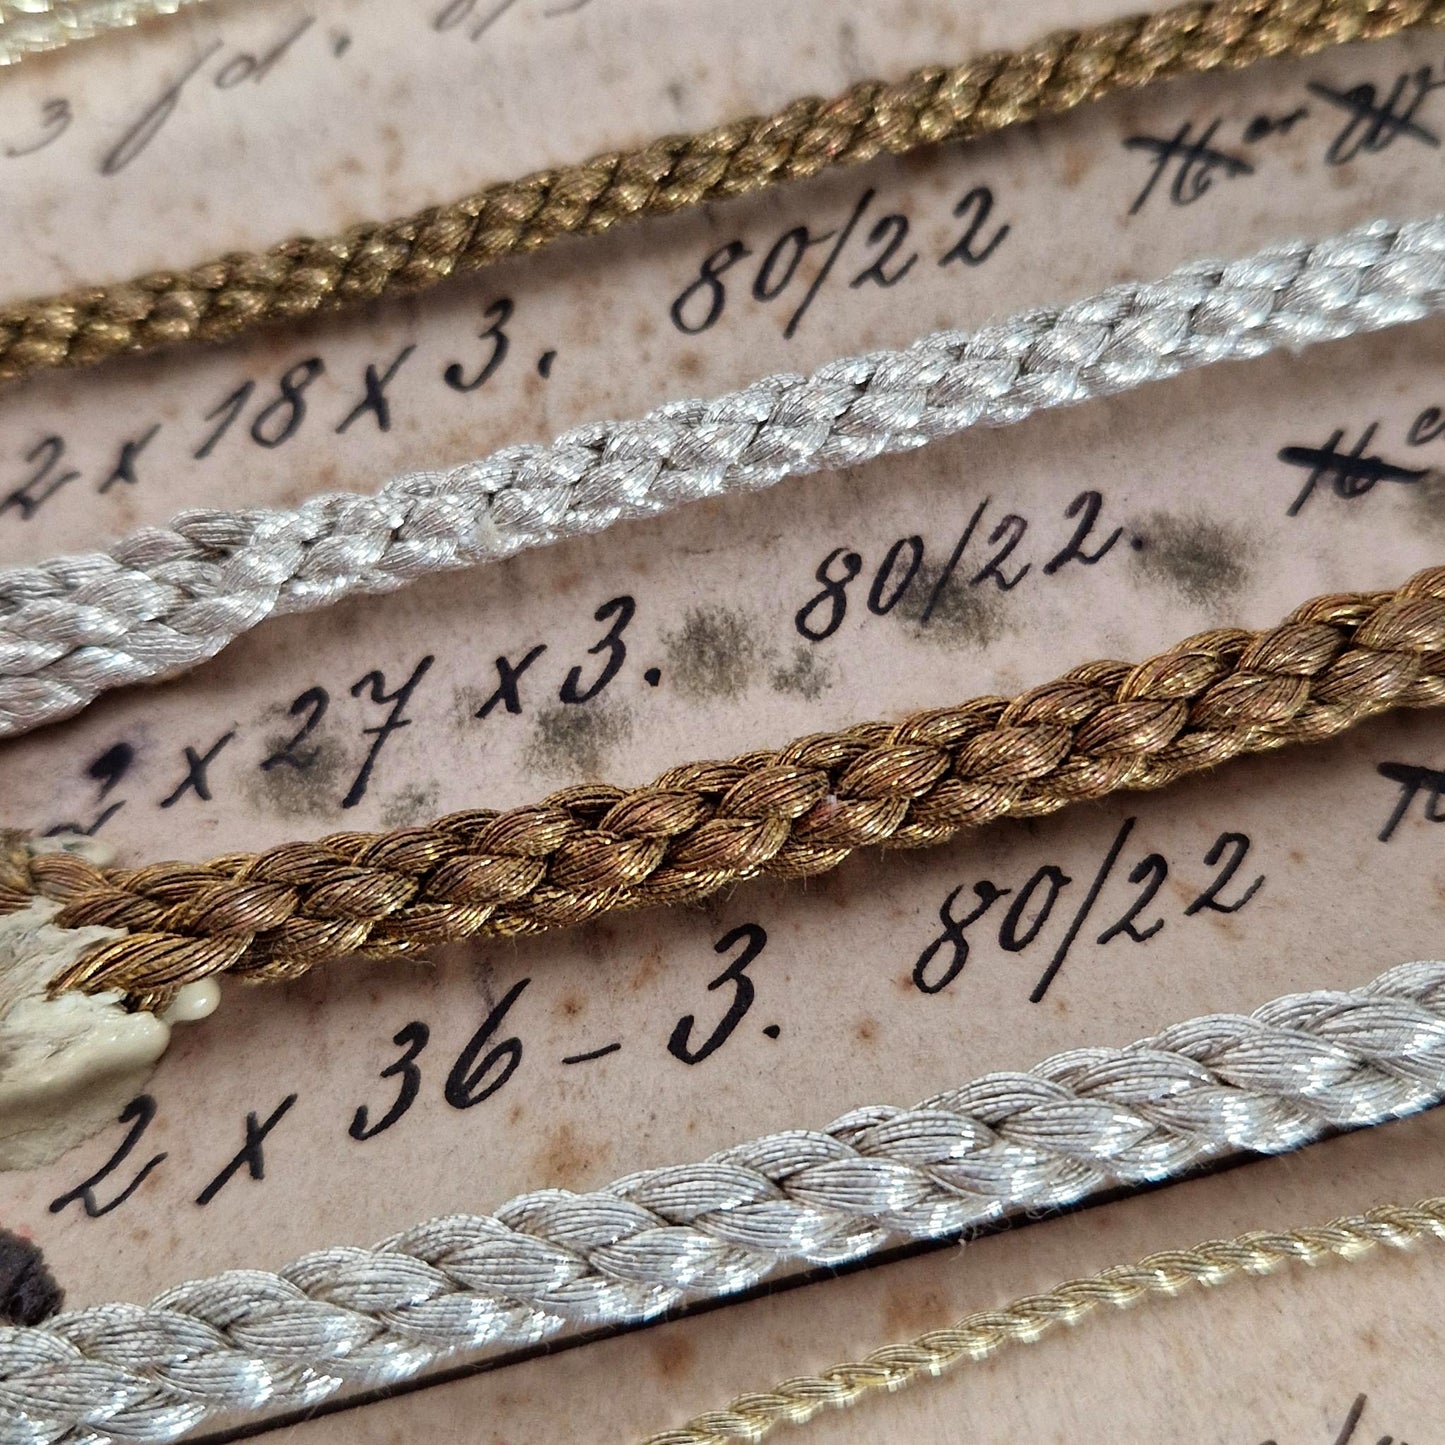 3 fd.
2 x 18 x 3. 80/22
2 x 27 x 3. 80/22.
2 x 36 - 3. 80/22